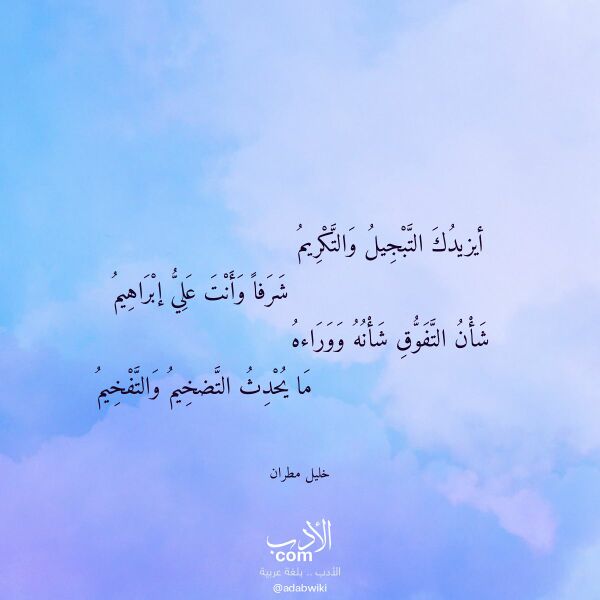 أيزيدُكَ التَّبْجِيلُ وَالتَّكْرِيمُ
شَرَفاً وَأَنْتَ عَلِيُّ إبْرَاهِيمُ
شَأْنُ التَّفَوُّقِ شَأْنُهُ وَوَرَاءهُ
مَا يُحْدِثُ التَّضخِيمُ وَالتَّفْخِيمُ
خليل مطران
الأدب
com
الأدب .. بلغة عربية
@adabwiki